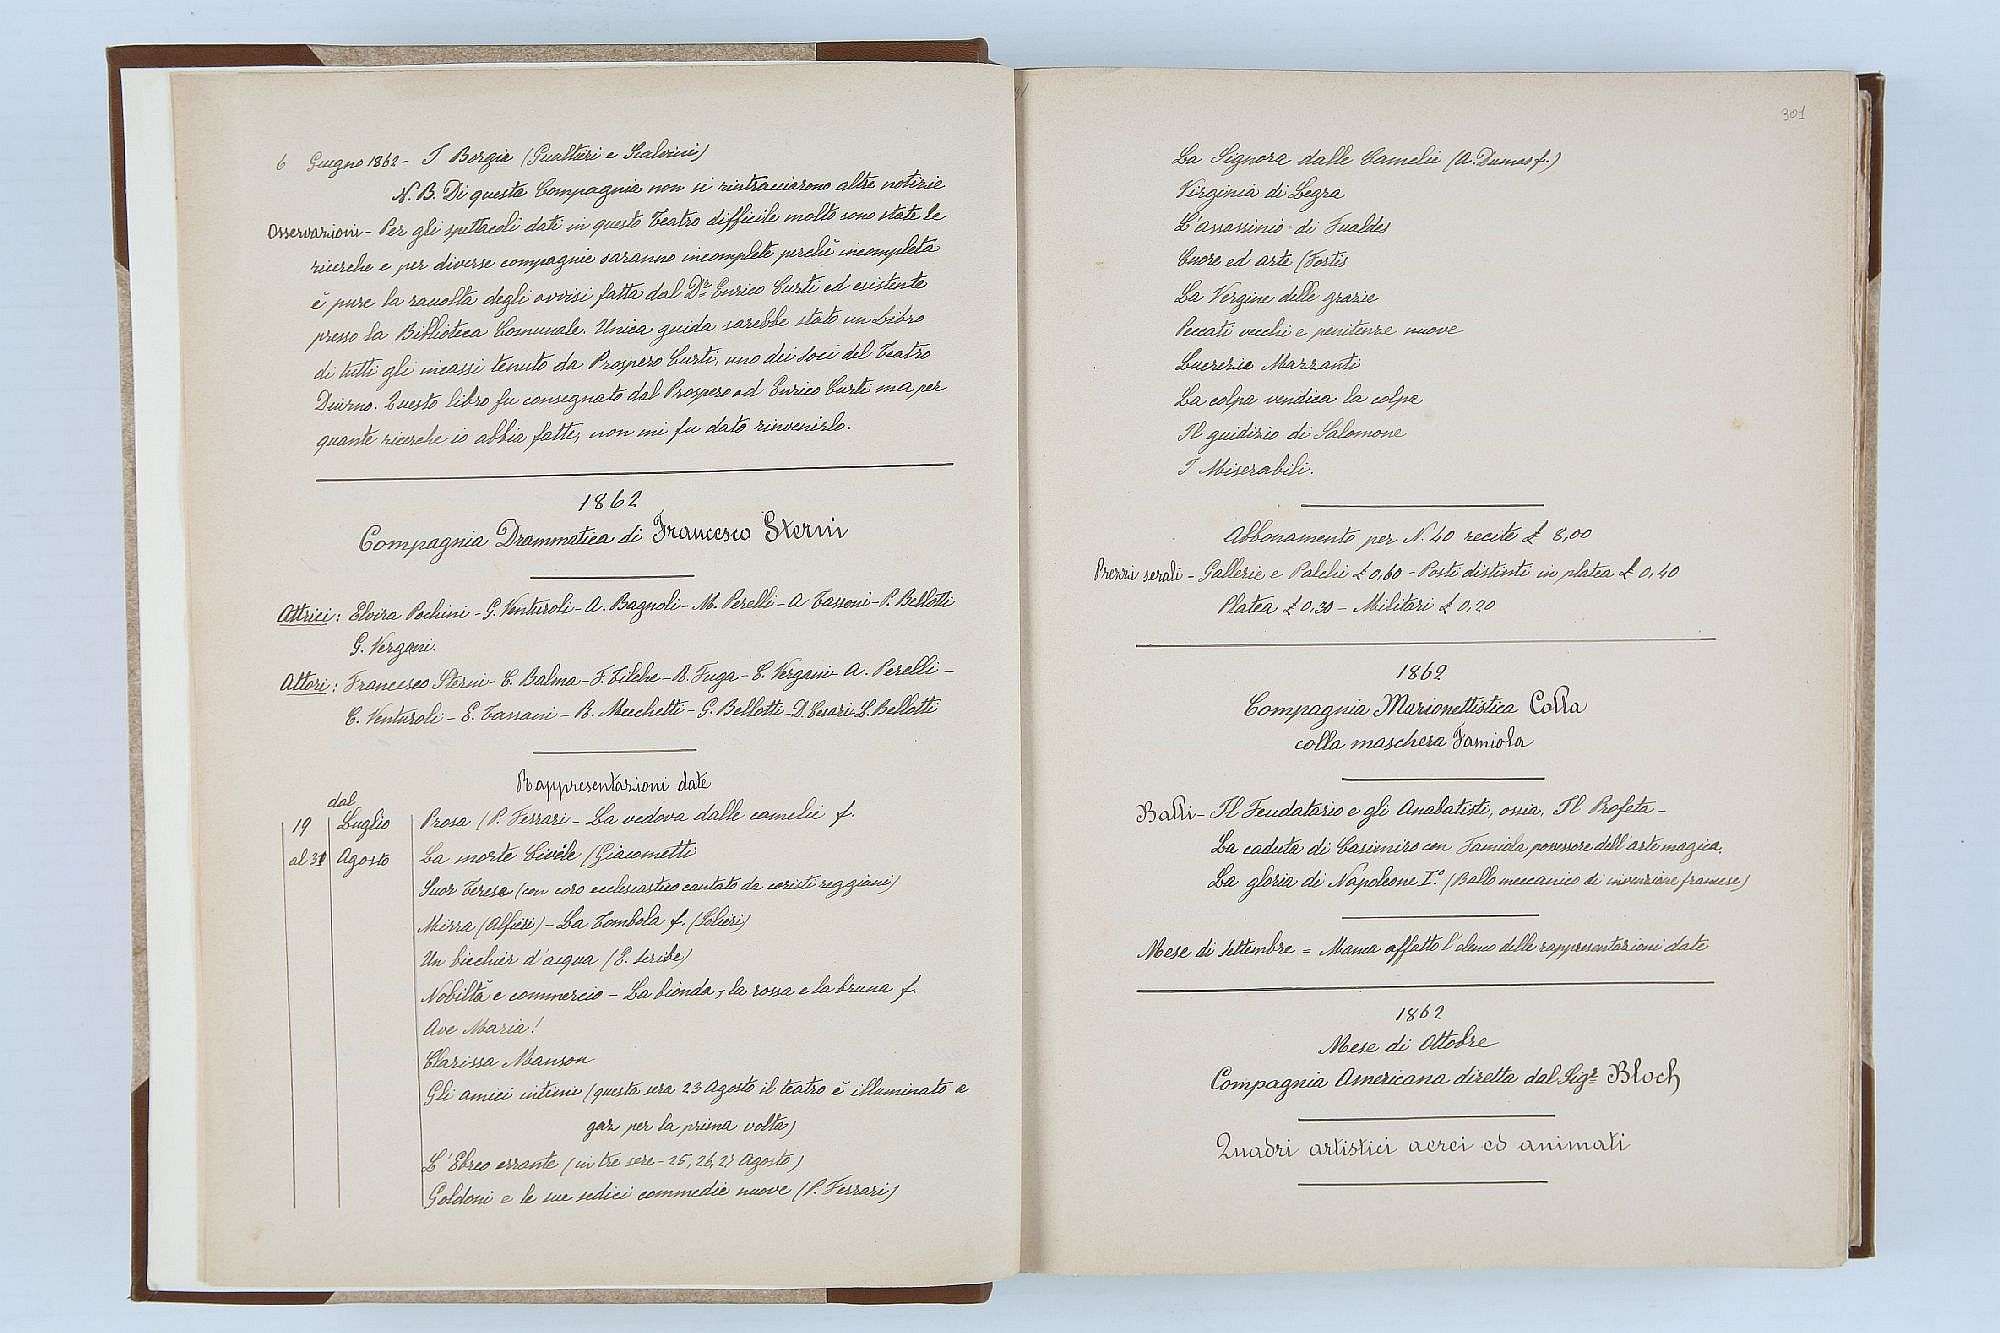 6 Giugno 1862 - I Borgia (Gualtieri e Scalvini)
N.B. Di questa Compagnia non si rintracciarono altre notizie
Osservazioni - Per gli spettacoli dati in questo Teatro difficile molto sono state le
ricerche e per diverse compagnie saranno incomplete perchè incompleta
è pure la raccolta degli avvisi fatta dal Dr. Enrico Curti ed esistente
presso la Biblioteca Comunale. Unica guida sarebbe stato un Libro
di tutti gli incassi tenuto da Prospero Curti, uno dei Soci del Teatro
Diurno. Questo libro fu consegnato dal Prospero ad Enrico Curti ma per
quante ricerche io abbia fatte, non mi fu dato rinvenirlo.
1862
Compagnia Drammatica di Francesco Sterni
Attrici: Elvira Pochini - G. Venturoli - A. Bagnoli - M. Perelli - A Tassoni - P. Bellotti
G. Vergani.
Attori: Francesco Sterni - C. Balma - F. Tilche - R. Fuga - C. Vergani - A. Perelli -
C. Venturoli - E. Tassani - R. Mecchetti - G. Bellotti - D. Cesari - L. Bellotti
Rappresentazioni date
dal
19 Luglio Prosa (P. Ferrari - La vedova dalle camelie f.
al 31 Agosto La morte Civile (Giacometti
Suor Teresa (con coro ecclesiastico cantato da coristi reggiani)
Mirra (Alfieri) - La Tombola f. (Solieri)
Un bicchier d'acqua (E. Scribe)
Nobiltà e commercio - La bionda, la rossa e la bruna f.
Ave Maria!
Clarissa Manson
Gli amici intimi (questa sera 23 Agosto il teatro è illuminato a
gaz per la prima volta)
L'Ebreo errante (in tre sere - 25, 26, 27 Agosto)
Goldoni e le sue sedici commedie nuove (P. Ferrari)
301
La Signora dalle Camelie (A. Dumas f.)
Virginia di Legra
L'assassinio di Fualdes
Cuore ed arte (Fortis
La Vergine delle grazie
Peccati vecchi e penitenze nuove
Lucrezia Mazzanti
La colpa vendica la colpa
Il guidizio di Salomone
I Miserabili.
Abbonamento per N. 40 recite £ 8,00
Prezzi serali - Gallerie e Palchi £ 0,60 - Posti distinti in platea £ 0,40
Platea £ 0,30 - Militari £ 0,20
1862
Compagnia Marionettistica Colla
colla maschera Famiola
Balli - Il Feudatario e gli Anabatisti, ossia, Il Profeta -
La caduta di Casimiro con Famiola possessore dell'arte magica.
La gloria di Napoleone I.° (Ballo meccanico di invenzione francese)
Mese di Settembre = Manca affatto l'elenco delle rappresentazioni date
1862
Mese di Ottobre
Compagnia Americana diretta dal Sigr. Bloch
Quadri artistici aerei ed animati